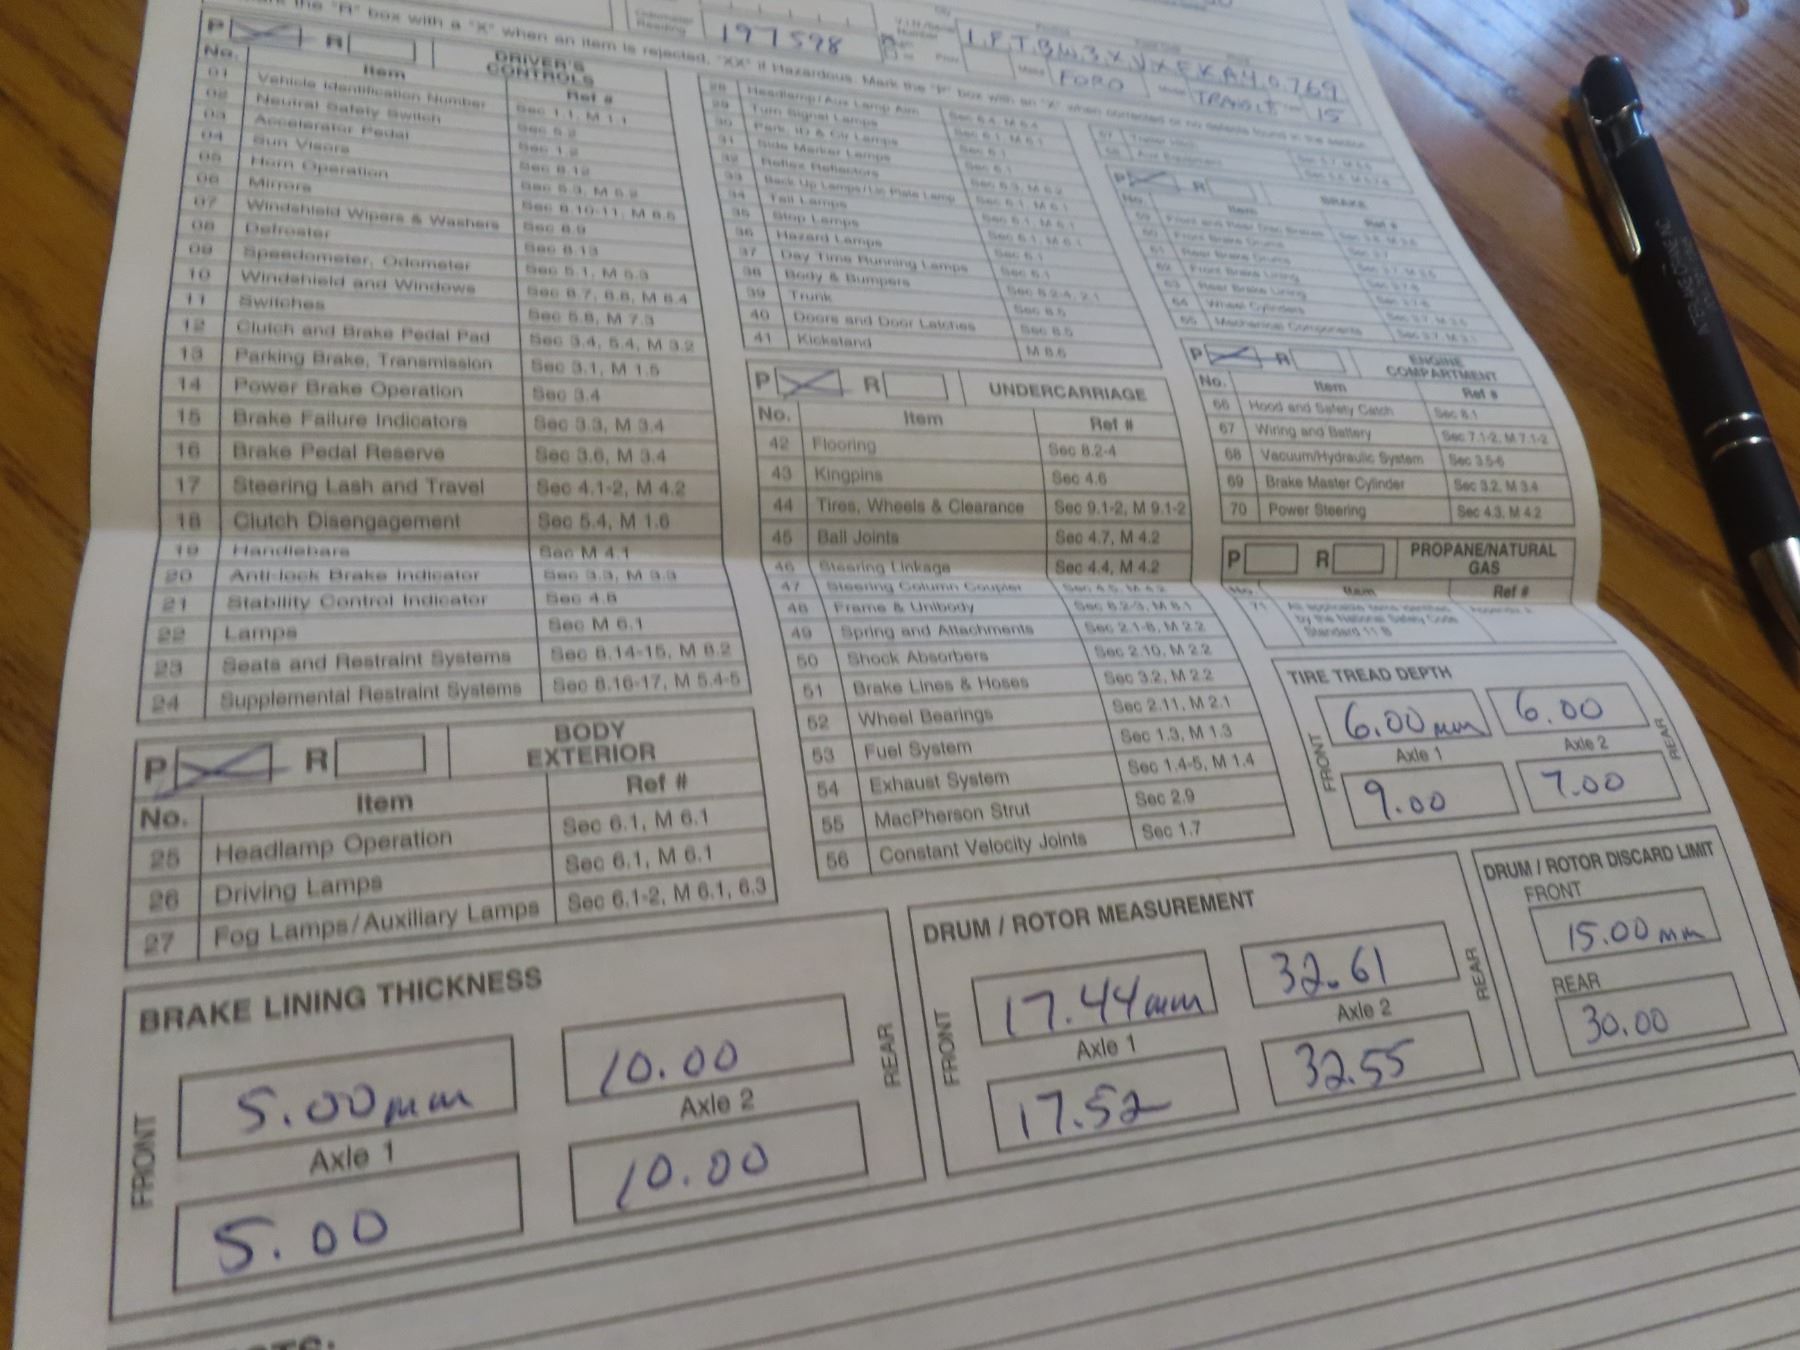 the "R" box with a "X" when an item is rejected, "XX" if Hazardous. Mark the "P" box with an "X" when corrected or no defects found in the section.
Odometer Reading
197598
FORD
TRANSIT
15
P R DRIVER'S CONTROLS
No. Item Ref #
01 Vehicle Identification Number Sec 1.1, M 1.1
02 Neutral Safety Switch Sec 5.2
03 Accelerator Pedal Sec 1.2
04 Sun Visors Sec 8.12
05 Horn Operation Sec 5.3, M 5.2
06 Mirrors Sec 8.10-11, M 8.5
07 Windshield Wipers & Washers Sec 8.9
08 Defroster Sec 8.13
09 Speedometer, Odometer Sec 5.1, M 5.3
10 Windshield and Windows Sec 8.7, 8.8, M 8.4
11 Switches Sec 5.8, M 7.3
12 Clutch and Brake Pedal Pad Sec 3.4, 5.4, M 3.2
13 Parking Brake, Transmission Sec 3.1, M 1.5
14 Power Brake Operation Sec 3.4
15 Brake Failure Indicators Sec 3.3, M 3.4
16 Brake Pedal Reserve Sec 3.6, M 3.4
17 Steering Lash and Travel Sec 4.1-2, M 4.2
18 Clutch Disengagement Sec 5.4, M 1.6
19 Handlebars Sec M 4.1
20 Anti-lock Brake Indicator Sec 3.3, M 3.3
21 Stability Control Indicator Sec 4.8
22 Lamps Sec M 6.1
23 Seats and Restraint Systems Sec 8.14-15, M 8.2
24 Supplemental Restraint Systems Sec 8.16-17, M 5.4-5
P R BODY EXTERIOR
No. Item Ref #
25 Headlamp Operation Sec 6.1, M 6.1
26 Driving Lamps Sec 6.1, M 6.1
27 Fog Lamps/Auxiliary Lamps Sec 6.1-2, M 6.1, 6.3
28 Headlamp/Aux Lamp Aim Sec 6.4, M 6.4
29 Turn Signal Lamps Sec 6.1, M 6.1
30 Park, ID & Clr Lamps Sec 6.1
31 Side Marker Lamps
32 Reflex Reflectors Sec 6.3, M 6.2
33 Back Up Lamps/Lic Plate Lamp Sec 6.1, M 6.1
34 Tail Lamps Sec 6.1, M 6.1
35 Stop Lamps Sec 6.1, M 6.1
36 Hazard Lamps Sec 6.1
37 Day Time Running Lamps Sec 6.1
38 Body & Bumpers Sec 8.2-4, 2.1
39 Trunk Sec 8.5
40 Doors and Door Latches Sec 8.5
41 Kickstand M 8.6
P R UNDERCARRIAGE
No. Item Ref #
42 Flooring Sec 8.2-4
43 Kingpins Sec 4.6
44 Tires, Wheels & Clearance Sec 9.1-2, M 9.1-2
45 Ball Joints Sec 4.7, M 4.2
46 Steering Linkage Sec 4.4, M 4.2
47 Steering Column Coupler Sec 4.5, M 4.2
48 Frame & Unibody Sec 8.2-3, M 8.1
49 Spring and Attachments Sec 2.1-8, M 2.2
50 Shock Absorbers Sec 2.10, M 2.2
51 Brake Lines & Hoses Sec 3.2, M 2.2
52 Wheel Bearings Sec 2.11, M 2.1
53 Fuel System Sec 1.3, M 1.3
54 Exhaust System Sec 1.4-5, M 1.4
55 MacPherson Strut Sec 2.9
56 Constant Velocity Joints Sec 1.7
57 Trailer Hitch
58 Aux Equipment
P R BRAKE
No. Item Ref #
59 Front and Rear Disc Brakes
60 Front Brake Drums
61 Rear Brake Drums
62 Front Brake Lining
63 Rear Brake Lining
64 Wheel Cylinders
65 Mechanical Components
P R ENGINE COMPARTMENT
No. Item Ref #
66 Hood and Safety Catch Sec 8.1
67 Wiring and Battery Sec 7.1-2, M 7.1-2
68 Vacuum/Hydraulic System Sec 3.5-6
69 Brake Master Cylinder Sec 3.2, M 3.4
70 Power Steering Sec 4.3, M 4.2
P R PROPANE/NATURAL GAS
No. Item Ref #
71 All applicable items identified by the National Safety Code Standard 11 B
TIRE TREAD DEPTH
FRONT 6.00mm 6.00 REAR
Axle 1 Axle 2
9.00 7.00
BRAKE LINING THICKNESS
FRONT 5.00mm 10.00 REAR
Axle 1 Axle 2
5.00 10.00
DRUM / ROTOR MEASUREMENT
FRONT 17.44mm 32.61 REAR
Axle 1 Axle 2
17.52 32.55
DRUM / ROTOR DISCARD LIMIT
FRONT
15.00mm
REAR
30.00